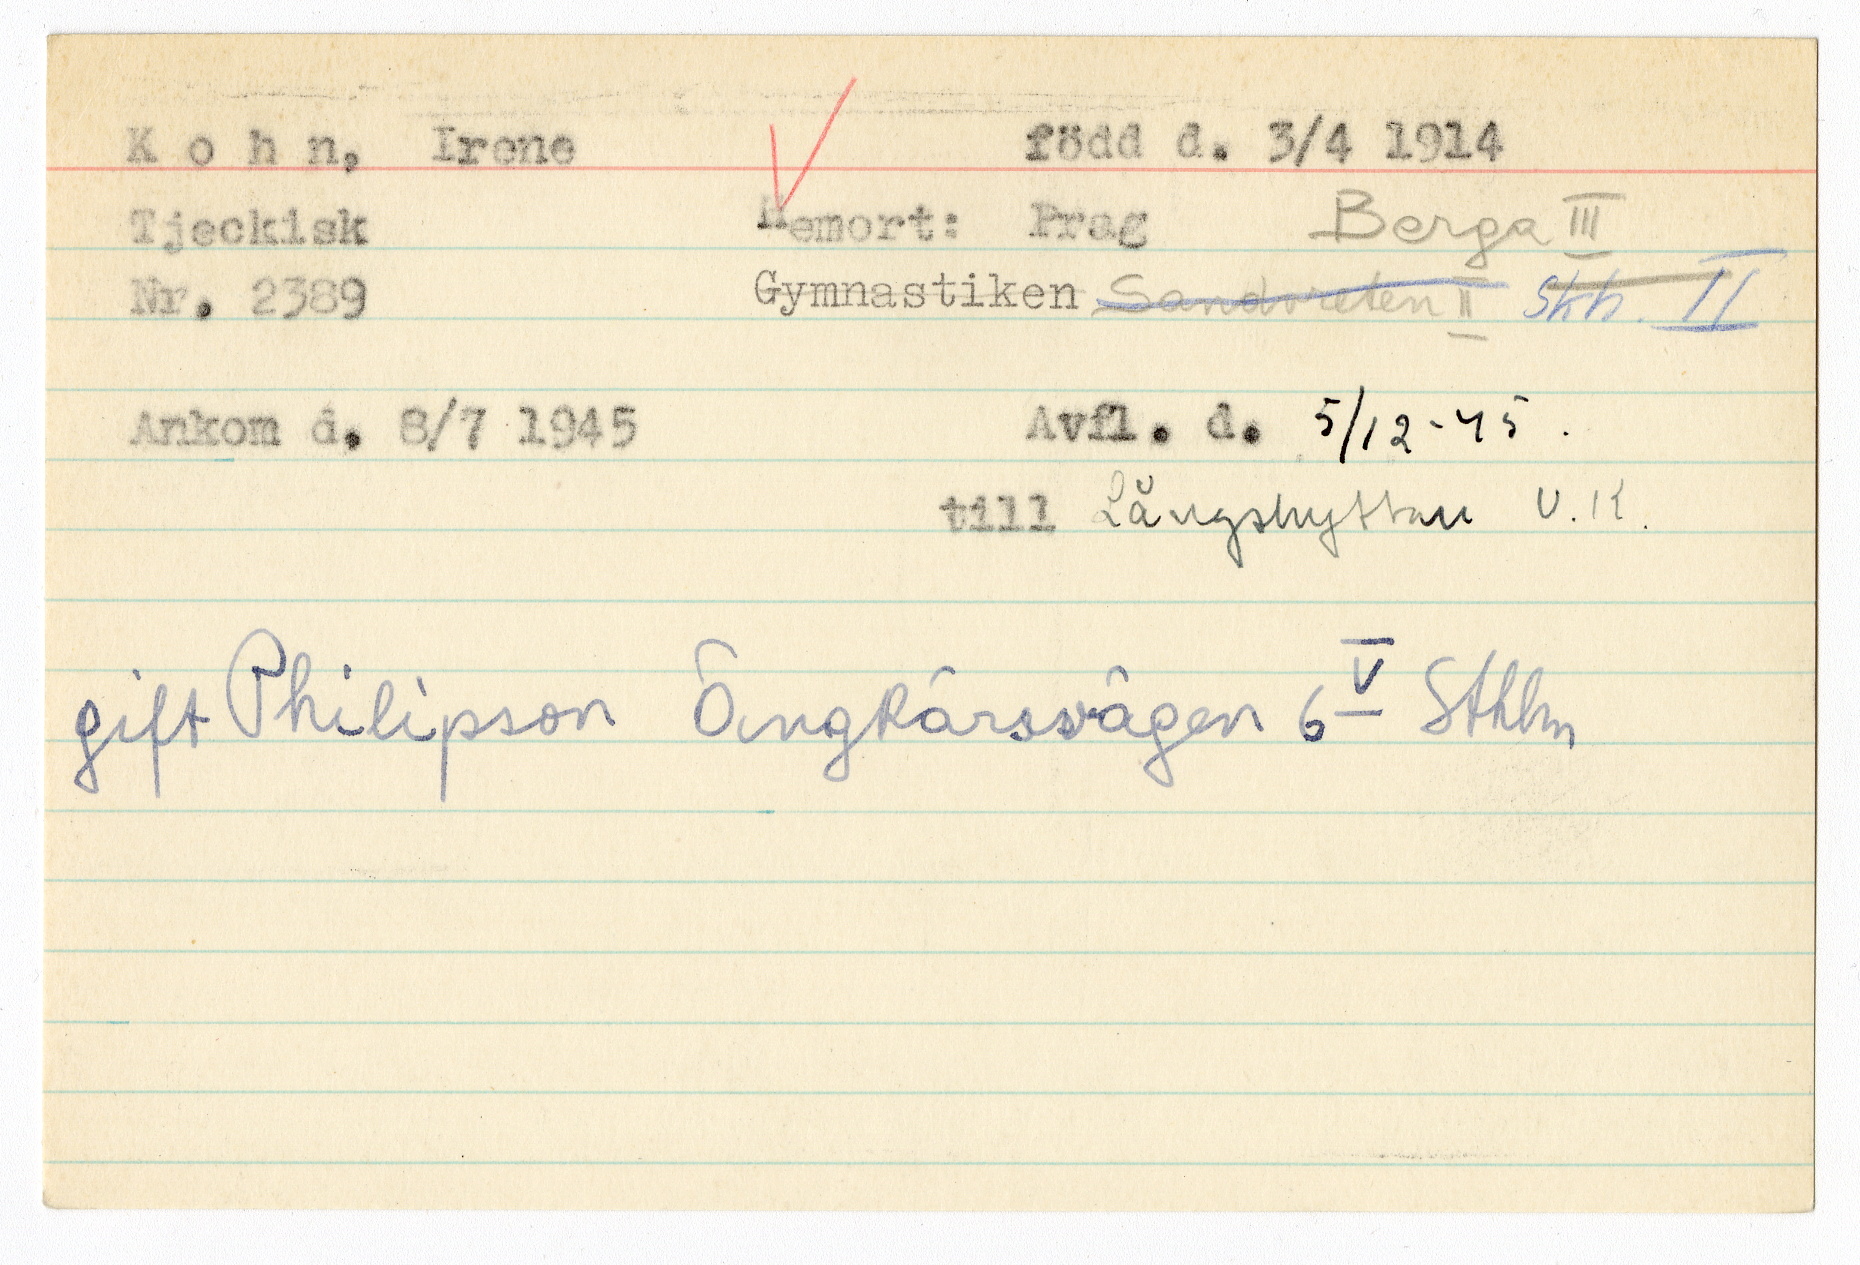 K o h n, Irene född d. 3/4 1914
Tjeckisk Hemort: Prag Berga III
Nr. 2389 Gymnastiken Sandvreten II Skh. II
Ankom d. 8/7 1945 Avfl. d. 5/12-45.
till Långshyttan U.K.
gift Philipson Ängkärsvägen 6 V Sthlm